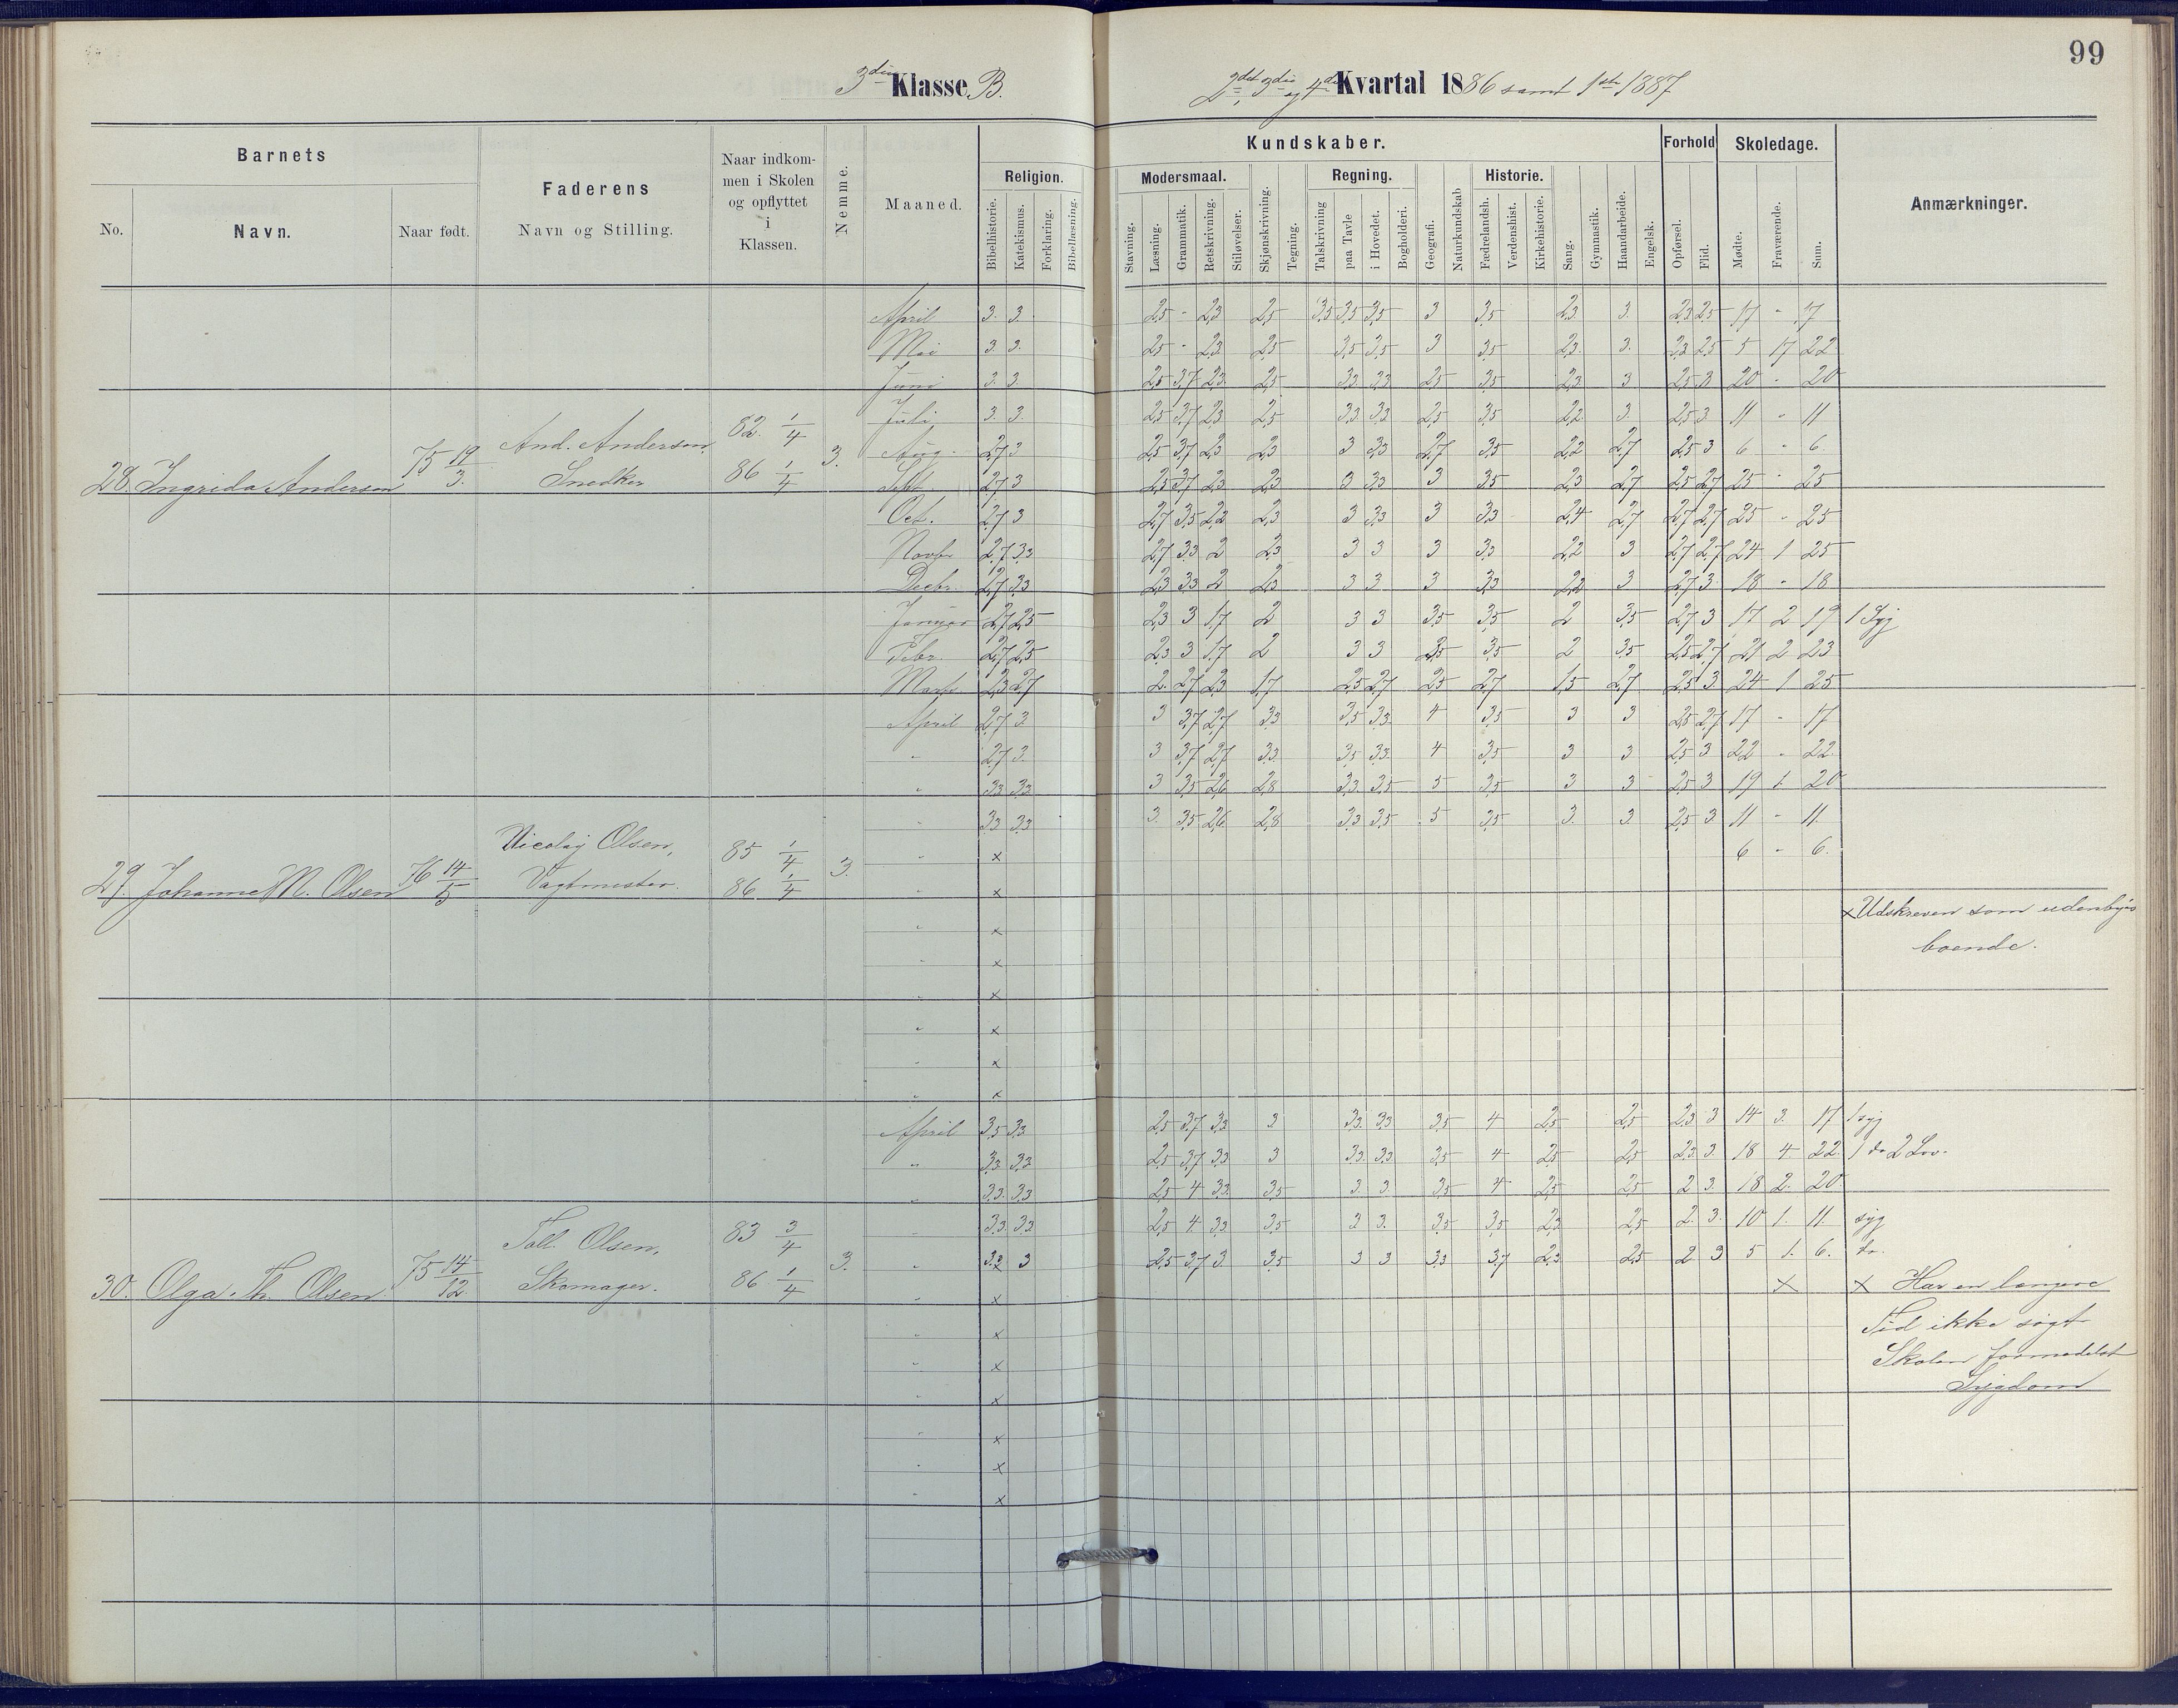 99
3die Klasse B.
2det, 3die og 4de Kvartal 1886 samt 1ste 1887
Barnets
No.
Navn.
Naar født.
Faderens
Navn og Stilling.
Naar indkom-
men i Skolen
og opflyttet
i
Klassen.
Nemme.
Maaned.
Kundskaber.
Religion.
Bibelhistorie.
Katekismus.
Forklaring.
Bibellæsning.
Modersmaal.
Stavning.
Læsning.
Grammatik.
Retskrivning.
Stiløvelser.
Skjønskrivning.
Tegning.
Regning.
Talskrivning
paa Tavle
i Hovedet.
Bogholderi.
Geografi.
Naturkundskab
Historie.
Fædrelandsh.
Verdenshist.
Kirkehistorie.
Sang.
Gymnastik.
Haandarbeide.
Engelsk.
Forhold
Opførsel.
Flid.
Skoledage.
Mødte.
Fraværende.
Sum.
Anmærkninger.
28. Ingrida Andersen 75 19/3. And. Andersen, Snedker 82. 1/4 86 1/4 3.
April 3. 3. 2,5 - 2,3 2,5 3,5 3,5 3,5 3 3,5 2,3 3. 2,3 2,5 17 - 17
Mai 3 3. 2,5 - 2,3 2,5 3,5 3,5 3 3,5 2,3 3. 2,3 2,5 5 17 22
Juni 3. 3. 2,5 3,7 2,3 2,5 3,3 3,3 2,5 3,5 2,3 3 2,5 3 20 - 20
Juli 3 3. 2,5 3,7 2,3 2,5 3,3 3,3 2,5 3,5 2,2 3 2,5 3 11 - 11
Aug. 2,7 3 2,5 3,7 2,3 2,3 3 3,3 2,7 3,5 2,2 2,7 2,5 3 6 - 6.
Sept 2,7 3 2,5 3,7 2,3 2,3 3 3,3 3 3,5 2,3 2,7 2,5 2,7 25 - 25
Oct. 2,7 3 2,7 3,5 2,2 2,3 3 3,3 3 3,3 2,4 2,7 2,7 2,7 25 - 25
Novbr 2,7 3,3 2,7 3,3 2 2,3 3 3 3 3,3 2,2 3 2,7 2,7 24 1 25
Decbr. 2,7 3,3 2,3 3,3 2 2,3 3 3 3 3,3 2,2 3 2,7 3. 18 - 18
Januar 2,7 2,5 2,3 3 1,7 2 3 3 3,5 3,5 2 3,5 2,7 3 17 2 19 1 Syg
Febr. 2,7 2,5 2,3 3 1,7 2 3 3 2,5 3,5 2 3,5 2,5 2,7 21 2 23
Marts 2,3 2,7 2. 2,7 2,3 1,7 2,5 2,7 2,5 2,7 1,5 2,7 2,5 3 24 1 25
29. Johanne M. Olsen 76 14/5 Nicolaj Olsen, Vagtmester. 85 1/4 86 1/4 3.
April 2,7 3 3 3,7 2,7 3,3 3,5 3,3 4 3,5 3 3 2,5 2,7 17 - 17
" 2,7 3. 3 3,7 2,7 3,3 3,5 3,3 4 3,5 3 3 2,5 3 22 - 22.
" 3,3 3,3 3 3,5 2,6 2,8 3,3 3,5 5 3,5 3 3 2,5 3 19 1 20
" 3,3 3,3 3. 3,5 2,6 2,8 3,3 3,5 5 3,5 3. 3 2,5 3 11 - 11.
" x 6 - 6.
" x
" x x Udskreven som udenbyes
boende.
" x
" x
" x
" x
" x
30. Olga Th. Olsen 75 14/12. Toll. Olsen, Skomager. 83 3/4 86 1/4 3.
April 3,5 3,3 2,5 3,7 3,3 3 3,3 3,3 3,5 4 2,5 2,5 2,3 3 14 3. 17 1 syg
" 3,3 3,3 2,5 3,7 3,3 3 3,3 3,3 3,5 4 2,5 2,5 2,3 3 18 4 22. 1 do 2 Lov.
" 3,3 3,3 2,5 4 3,3 3,5 3. 3. 3,5 4 2,5 2,5 2 3. 18 2. 20.
" 3,3 3,3 2,5 4 3,3 3,5 3 3. 3,5 3,5 2,3 2,5 2. 3. 10 1. 11. syg
" 3,3 3 2,5 3,7 3. 3,5 3 3 3,3 3,7 2,3 2,5 2 3 5 1. 6. do.
" x x x Har en længere
" x Tid ikke søgt
" x Skolen formedelst
" x Sygdom
" x
" x
" x